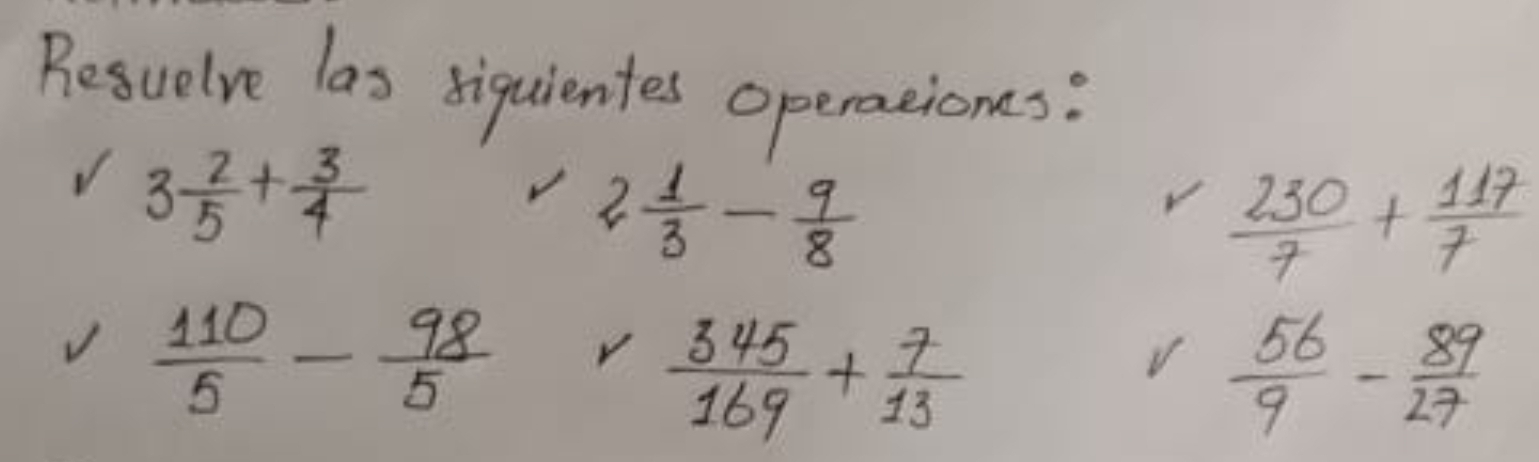 Resuelve las siguientes operaciones:
✓ 3 2/5 + 3/4 ✓ 2 1/3 - 9/8 ✓ 230/7 + 117/7
✓ 110/5 - 98/5 ✓ 345/169 + 7/13 ✓ 56/9 - 89/27